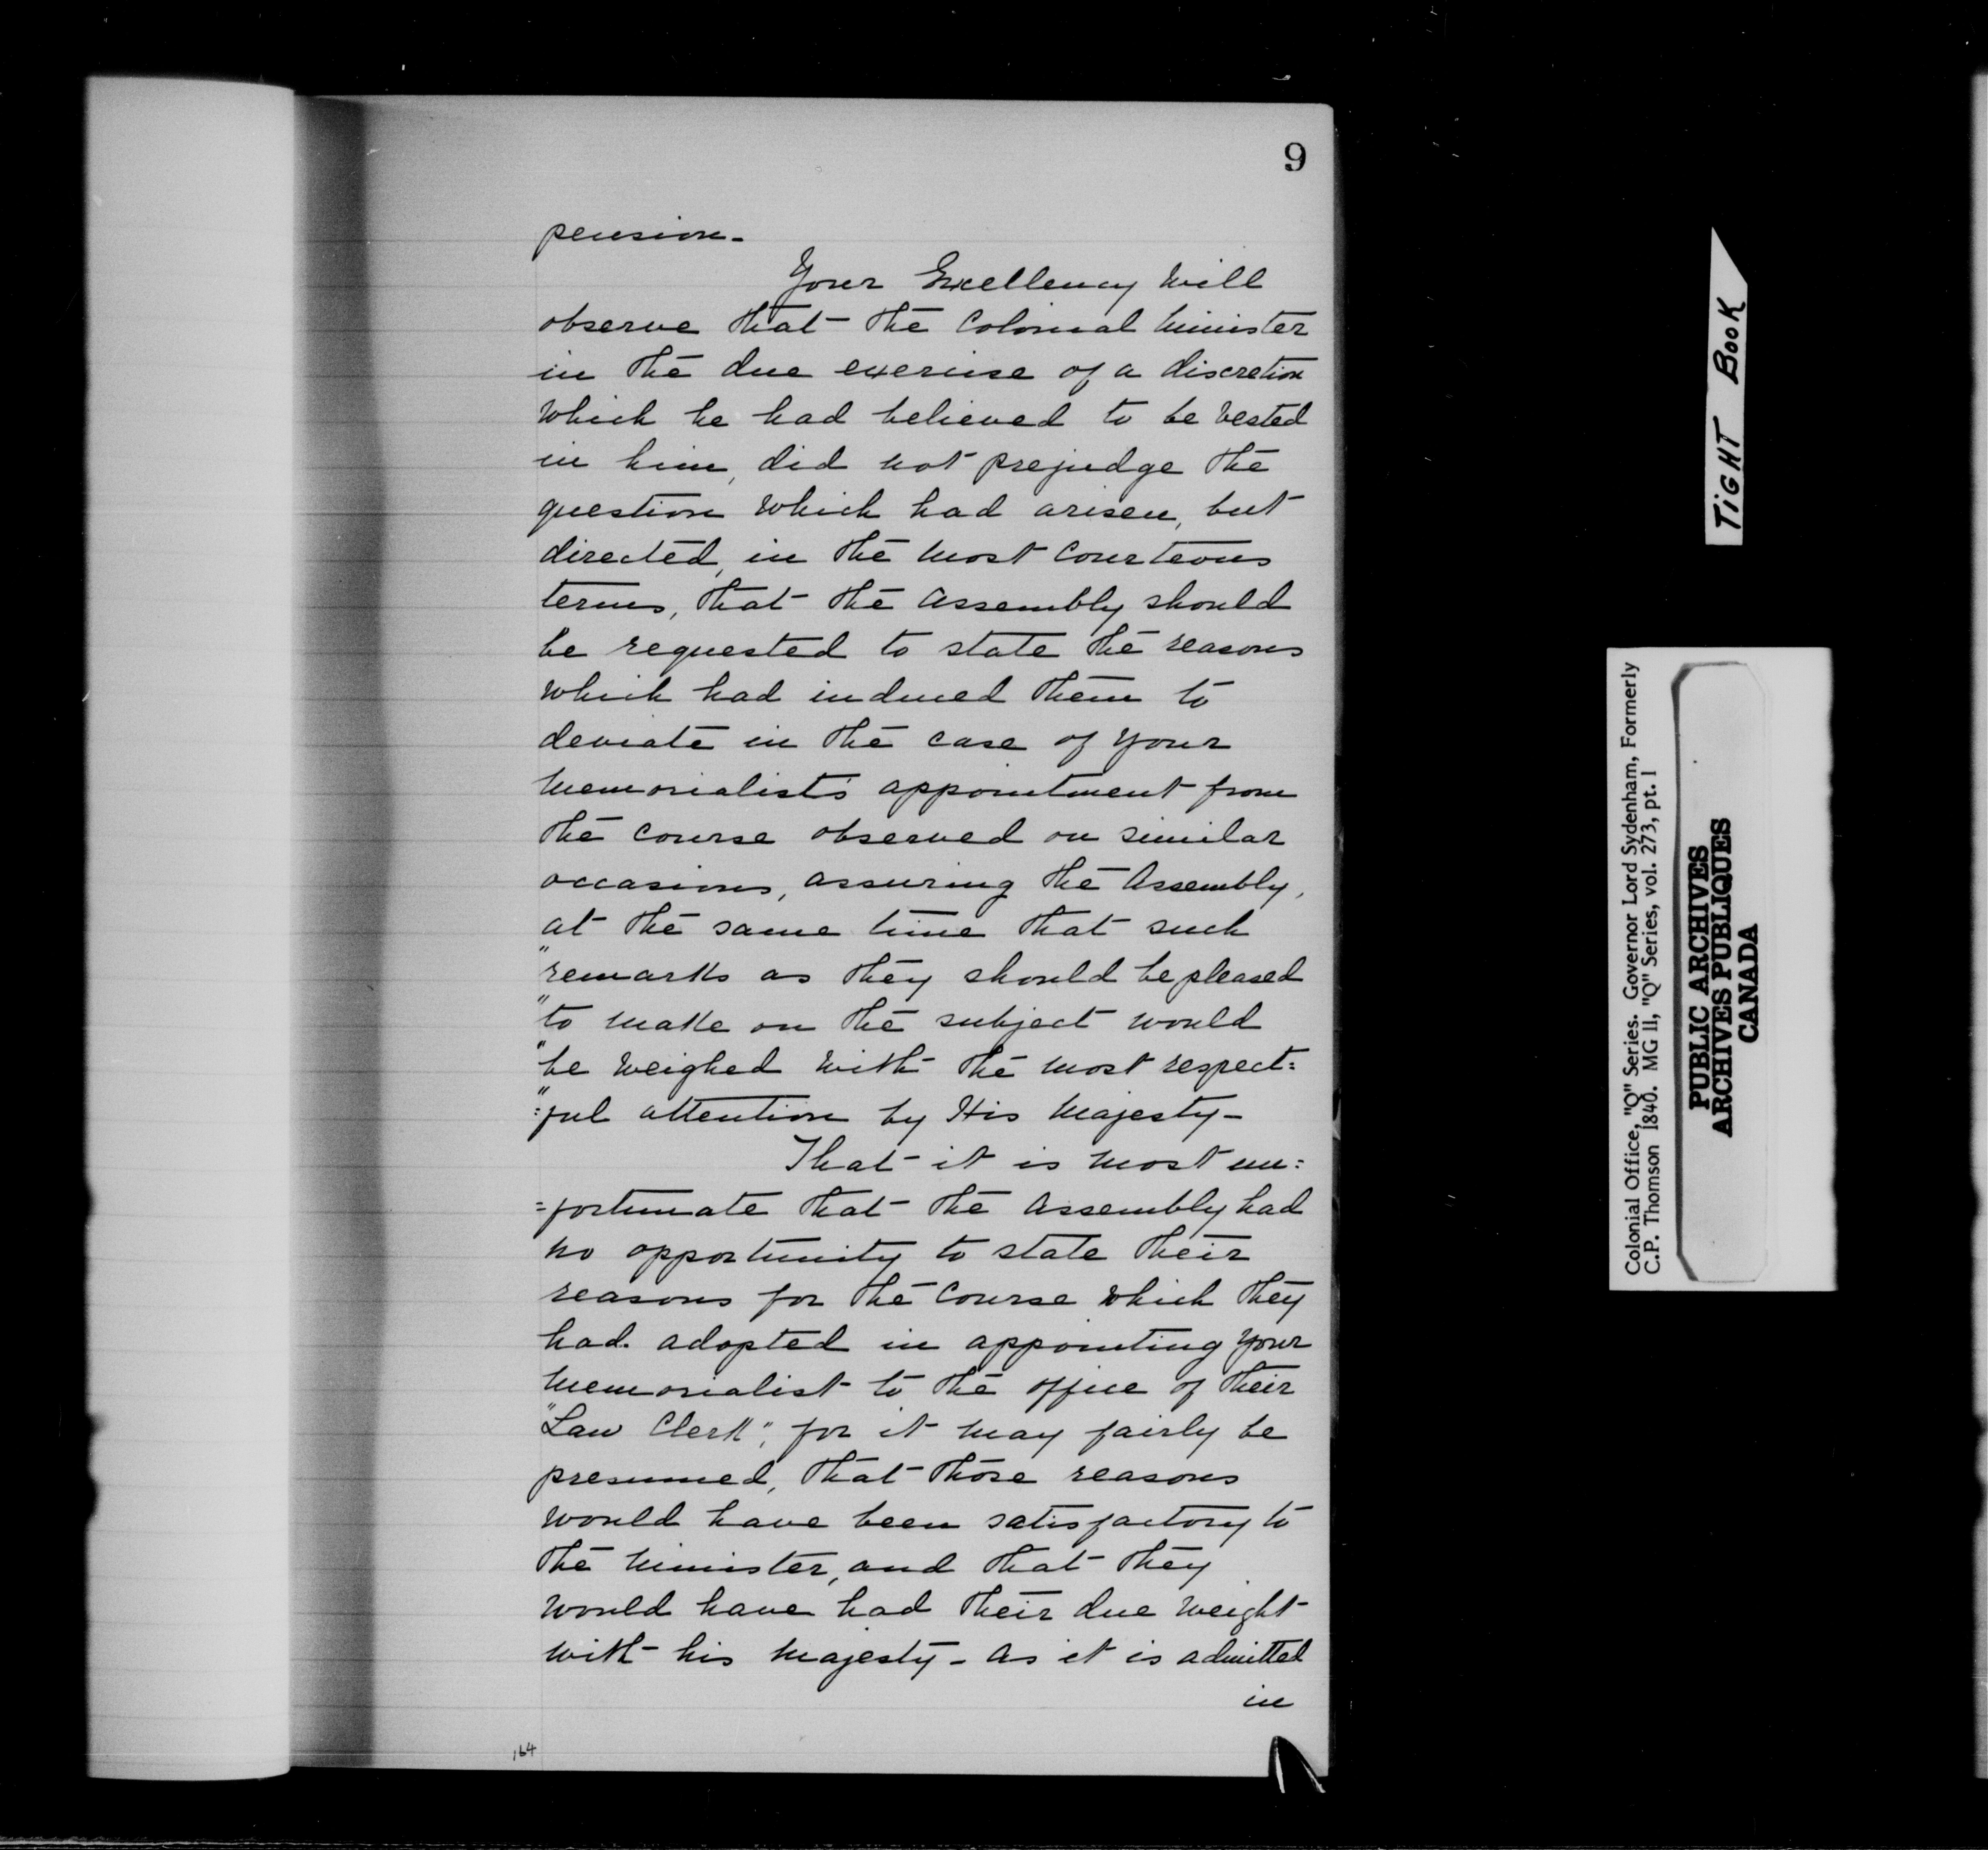 9
pension-
Your Excellency will
observe that the Colonial Minister
in the due exercise of a discretion
which he had believed to be vested
in him, did not prejudge the
question which had arisen, but
directed, in the most courteous
terms, that the Assembly should
be requested to state the reasons
which had induced them to
deviate in the case of your
Memorialist's appointment from
the course observed on similar
occasions, assuring the Assembly,
at the same time that such
"remarks as they should be pleased
"to make on the subject would
"be weighed with the most respect=
"=ful attention by His Majesty-
That it is most un=
=fortunate that the Assembly had
no opportunity to state their
reasons for the course which they
had. adopted in appointing your
Memorialist to the office of their
"Law Clerk", for it may fairly be
presumed, that those reasons
would have been satisfactory to
the Minister, and that they
would have had their due weight
with his Majesty - as it is admitted
in
164
TIGHT BOOK
Colonial Office, "Q" Series. Governor Lord Sydenham, Formerly
C.P. Thomson 1840. MG 11, "Q" Series, vol. 273, pt. 1
PUBLIC ARCHIVES
ARCHIVES PUBLIQUES
CANADA